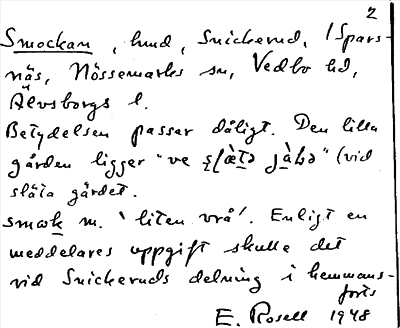 2
Smockan, hmd, Snickerud, (Spars-
näs, Nössemarks sn, Vedbo hd,
Älvsborgs l.
Betydelsen passar dåligt. Den lilla
gården ligger "ve (vid
släta gärdet.
smɔk m. 'liten vrå'. Enligt en
meddelares uppgift skulle det
vid Snickeruds delning i hemmans-
E. Rosell 1948